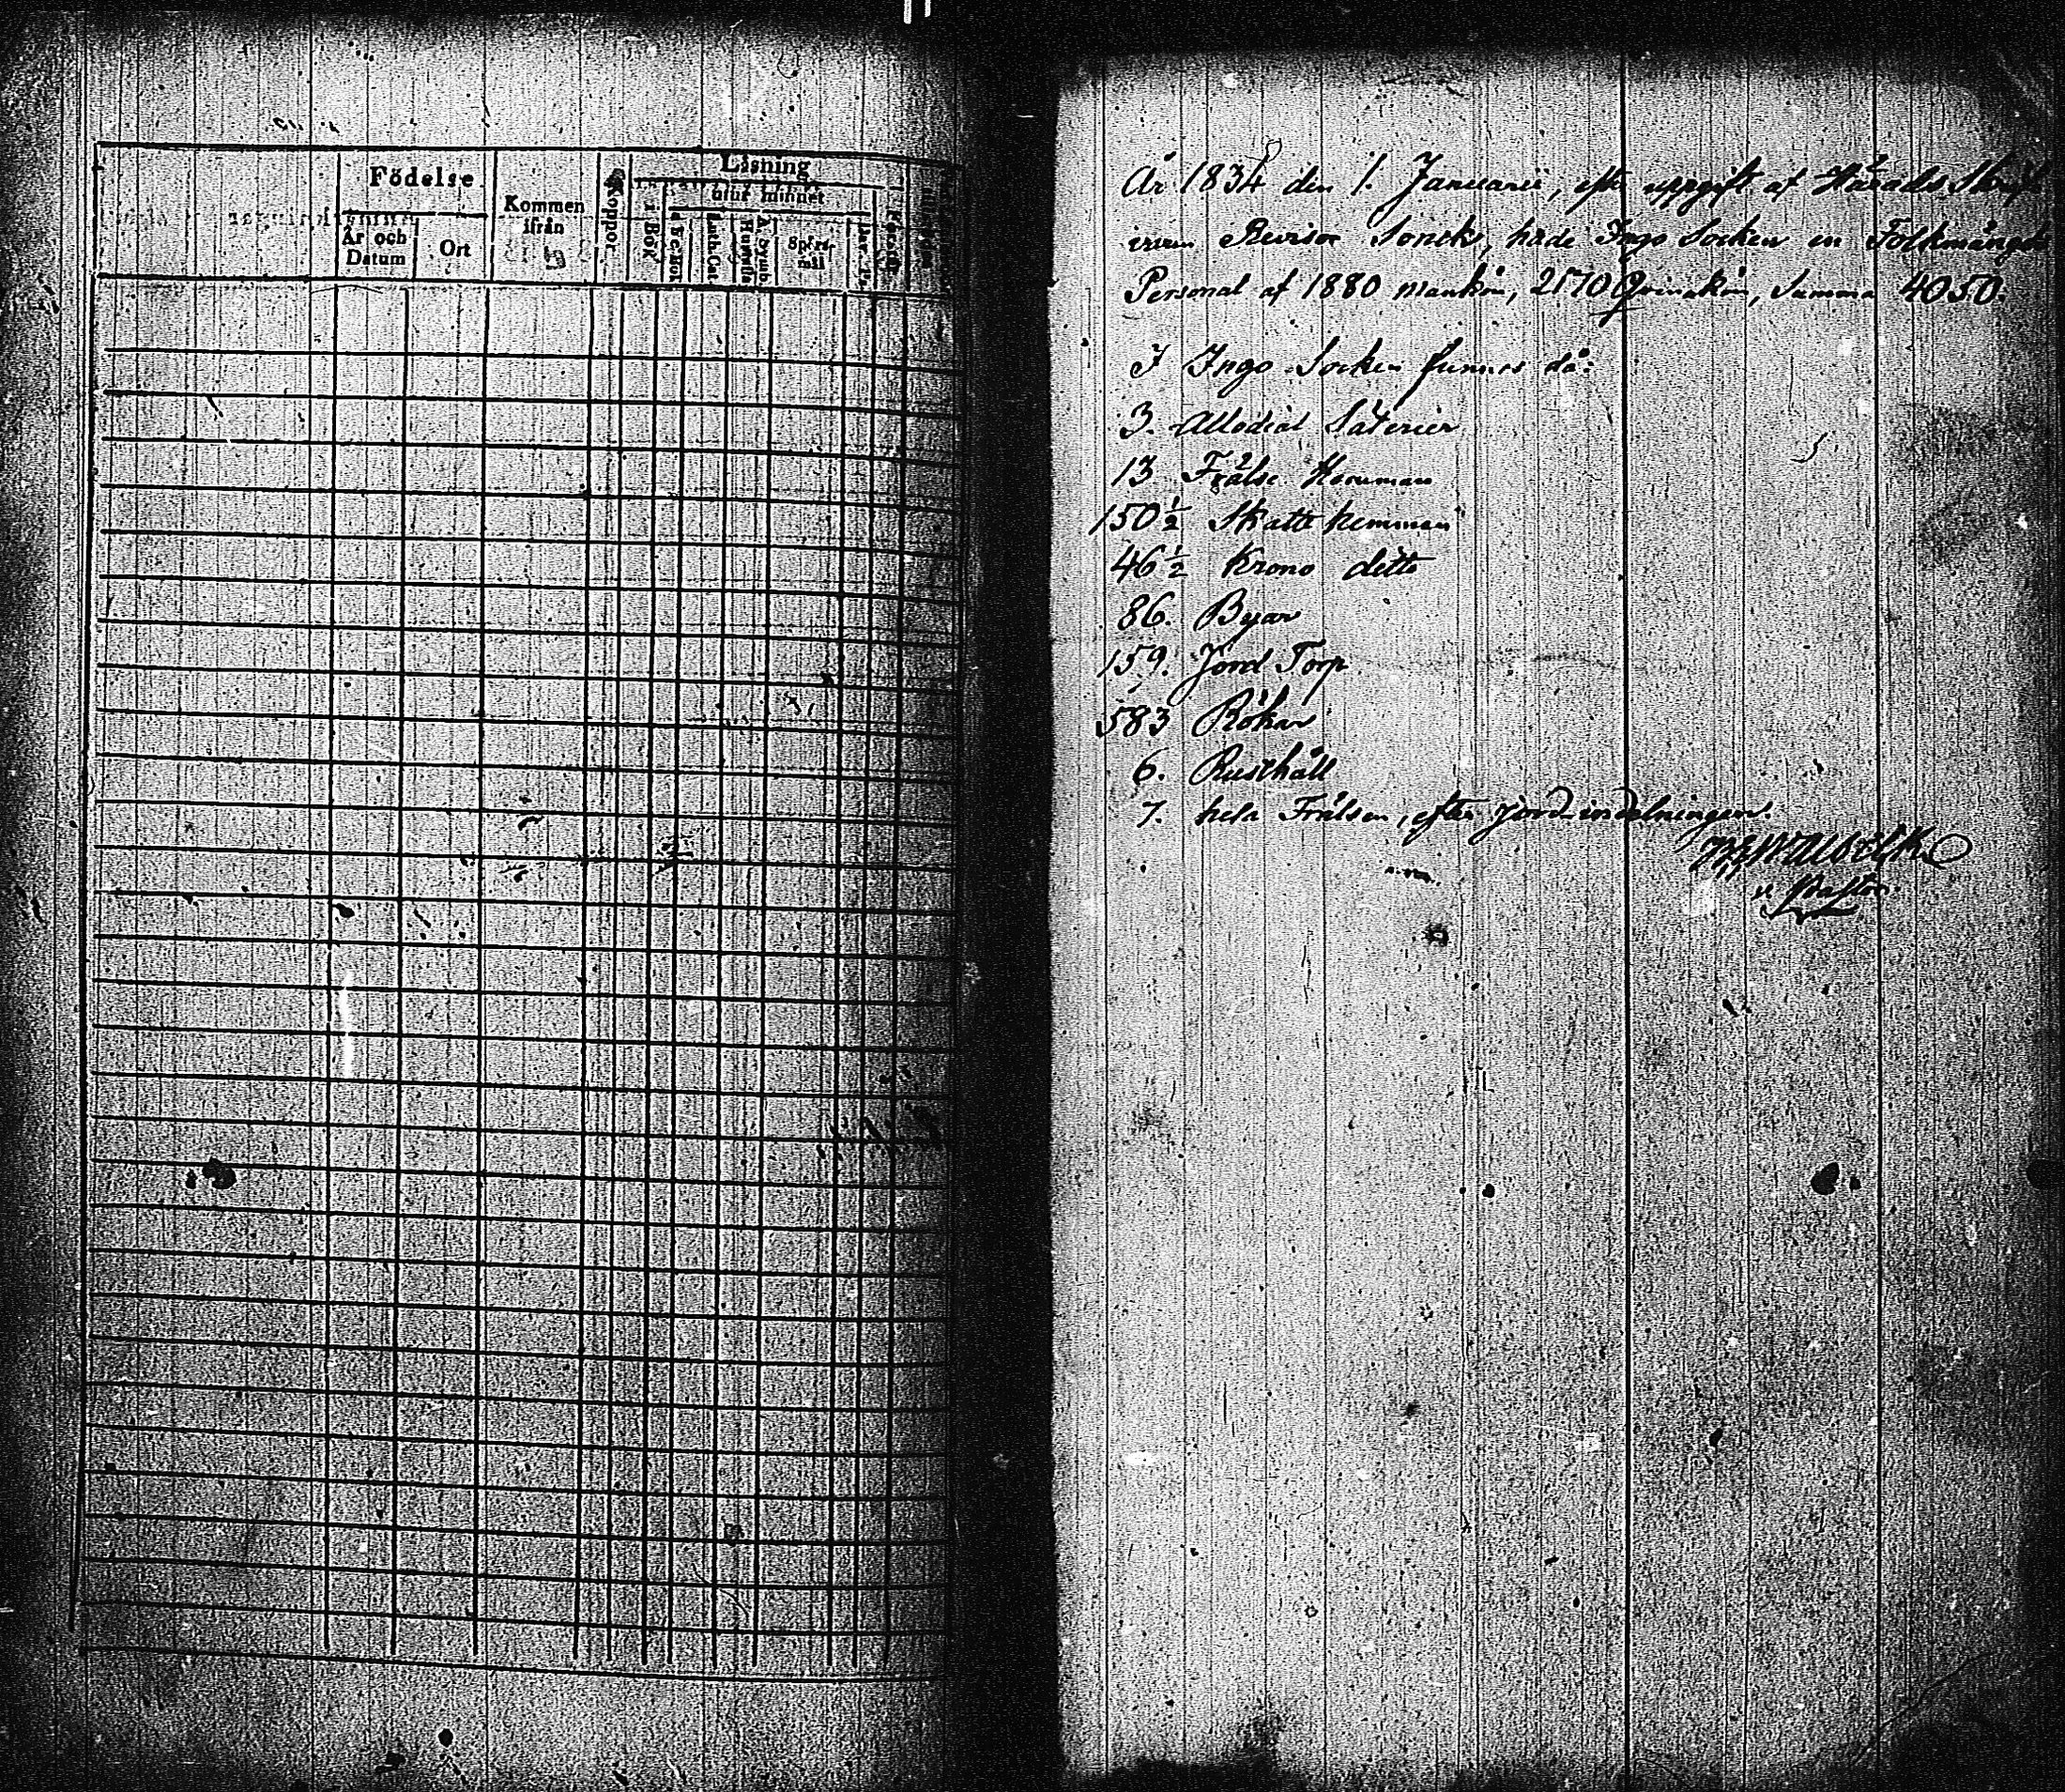 Födelse
Läsning
utur minnet
Kommen
ifrån
År och
Datum
Ort
Koppor
i Bok
Luth. Cat.
Hustafla
A. Symb.
Spörs-
mål
År 1834 den 1. Januarii, efter uppgift af Härads Skrif
Revisor Sonck, hade Ingo Socken en Folkmängd
Personal af 1880 mankön, 2170 Qvinnkön, Summa 4050.
I Ingo Socken funnos då:
3. Allodial Säterier
13 Frälse Hemman
150 1/2 Skatte hemman
46 1/2 Krono ditto
86. Byar
159. Jord Torp
583 Rökar
6. Rusthåll
7. hela Frälsen, efter Jord-indelningen.
v. Pastor.